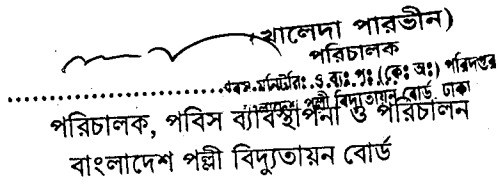 (খালেদা পারভীন)
পরিচালক
পরিদপ্তর
বাংলাদেশ পল্লী বিদ্যুতায়ন বোর্ড, ঢাকা
পরিচালক, পবিস ব্যাবস্থাপনা ও পরিচালন
বাংলাদেশ পল্লী বিদ্যুতায়ন বোর্ড